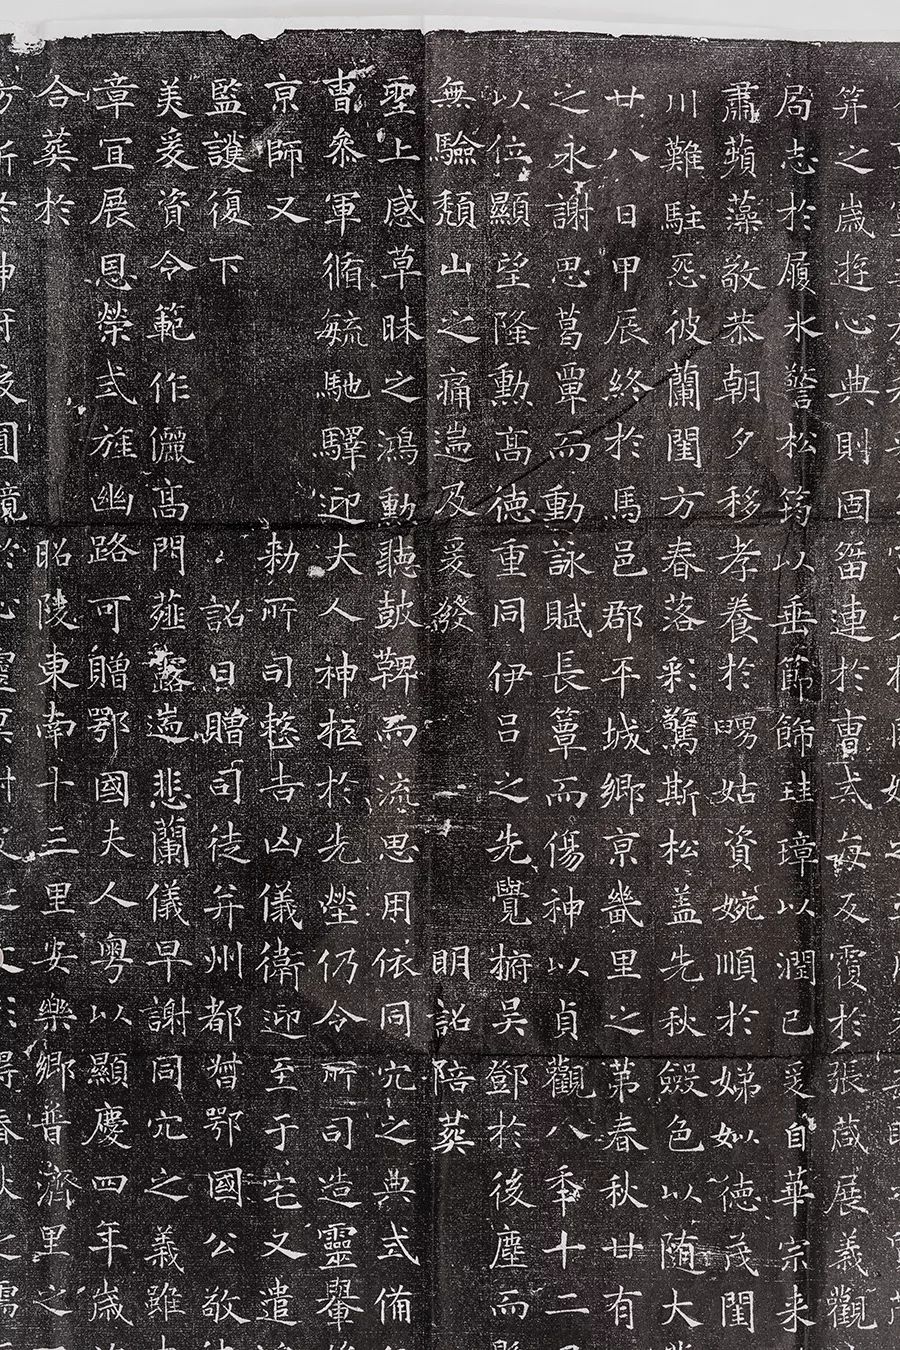 笄之歲遊心典則固留連於曹彧每反覆於張葴展義觀
局志於履氷警松筠以垂節飾珪璋以潤己爰自華宗来
肅蘋藻敬恭朝夕移孝養於嘒姑資婉順於娣姒德茂閨
川難駐忽彼蘭閨方春落彩驚斯松盖先秋斂色以隨大
廿八日甲辰終於馬邑郡平城鄉京畿里之第春秋廿有
之永謝思葛覃而動詠賦長簟而傷神以貞觀八年十二
以位顯望隆勲高德重同伊呂之先覺掩吴鄧於後塵而
無驗頽山之痛遄及爰發 明詔陪葬
聖上感草昧之鴻勲聽鼓鞞而流思用依同穴之典式備
曹叅軍脩毓馳驛迎夫人神柩於先塋仍令所司造靈轝
京師又 勑所司整吉凶儀衛迎至于宅又遣
監護復下 詔曰贈司徒并州都督鄂國公敬
美爰資令範作儷高門薤露遄悲蘭儀早謝同穴之義雖
章宜展恩榮式旌幽路可贈鄂國夫人粤以顯慶四年歲
合葬於 昭陵東南十三里安樂鄉普濟里之